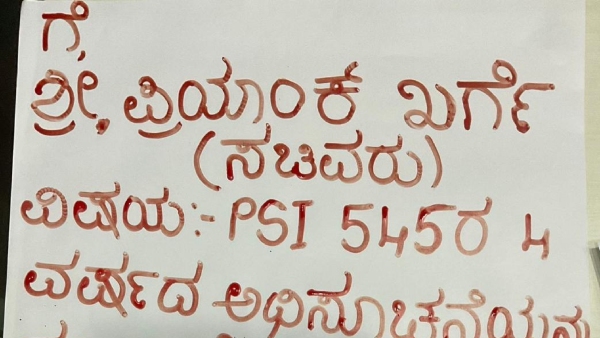 ಗೆ,
ಶ್ರೀ, ಪ್ರಿಯಾಂಕ್ ಖರ್ಗೆ
(ಸಚಿವರು)
ವಿಷಯ:- PSI 545ರ 4
ವರ್ಷದ ಅಧಿಸೂಚನೆಯನ್ನು